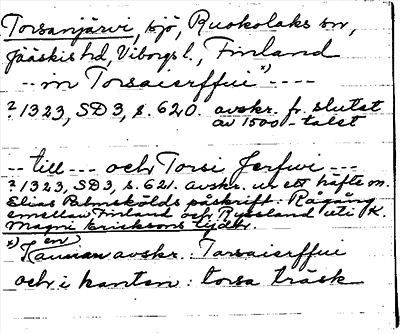 Torsanjärvi, sjö, Ruokolaks sn,
Jääskis hd, Viborgs l., Finland
-- in Torsaierffui x) ----
? 1323, SD 3, s. 620. avskr. fr. slutet
av 1500-talet
-- till --- och Torsi Jerfwi ---
? 1323, SD 3, s. 621. avskr. ur ett häfte m.
Elias Palmskölds påskrift: Rågång
emellan Finland och Ryssland uti K.
Magni Ericksons tijdh.
x) en
Annan avskr.: Torsaierffui
och i kanten: torsa träsk